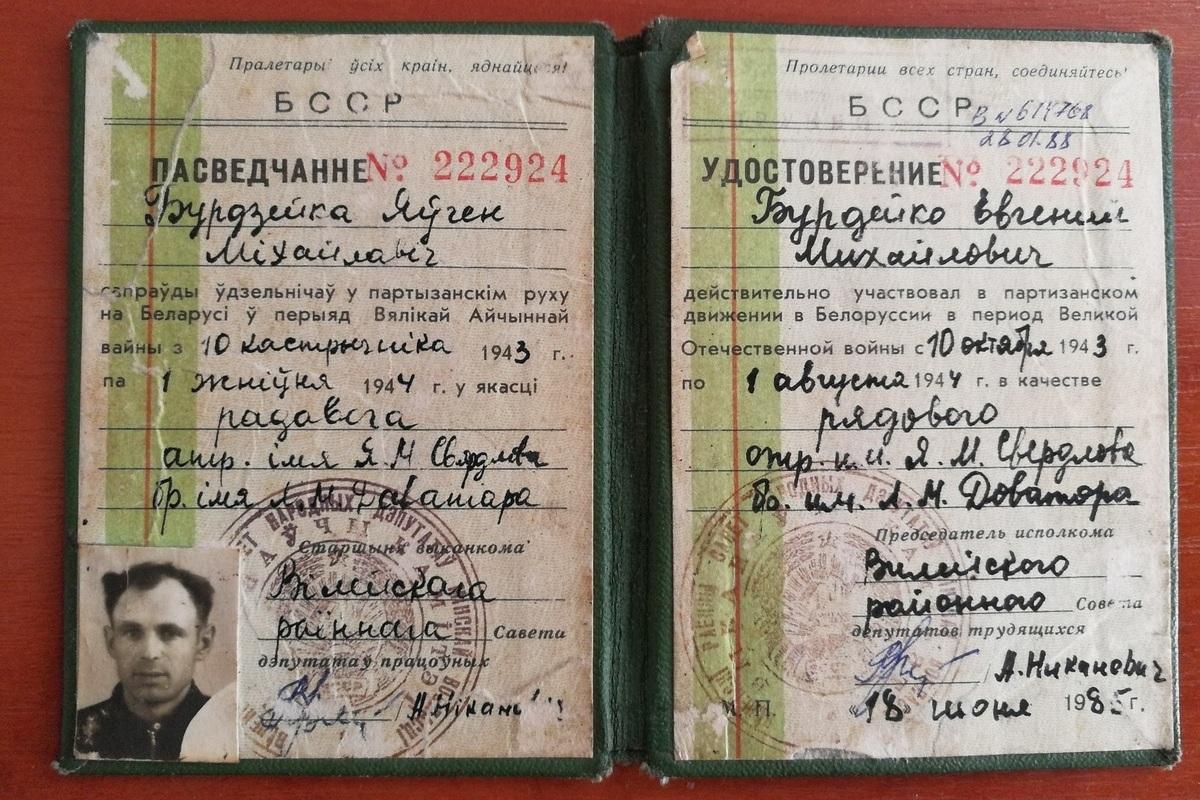 Пралетарыі ўсіх краін, яднайцеся!
БССР
ПАСВЕДЧАННЕ № 222924
Бурдзейка Яўген
Міхайлавіч
сапраўды ўдзельнічаў у партызанскім руху
на Беларусі ў перыяд Вялікай Айчыннай
вайны з 10 кастрычніка 1943 г.
па 1 жніўня 1944 г. у якасці
радавога
атр. імя Я. М Свярдлова
бр. імя Л. М. Даватара
Старшыня выканкома
Вілейскага
раённага Савета
дэпутатаў працоўных
Пролетарии всех стран, соединяйтесь!
БССР
В № 614768
28.01.88
УДОСТОВЕРЕНИЕ № 222924
Бурдейко Евгений
Михайлович
действительно участвовал в партизанском
движении в Белоруссии в период Великой
Отечественной войны с 10 октября 1943 г.
по 1 августа 1944 г. в качестве
рядового
отр. и.и. Я. М. Свердлова
бр. им. Л. М. Доватора
Председатель исполкома
Вилейского
районного Совета
депутатов трудящихся
/А. Никанович
М. П. «18» июня 1985 г.